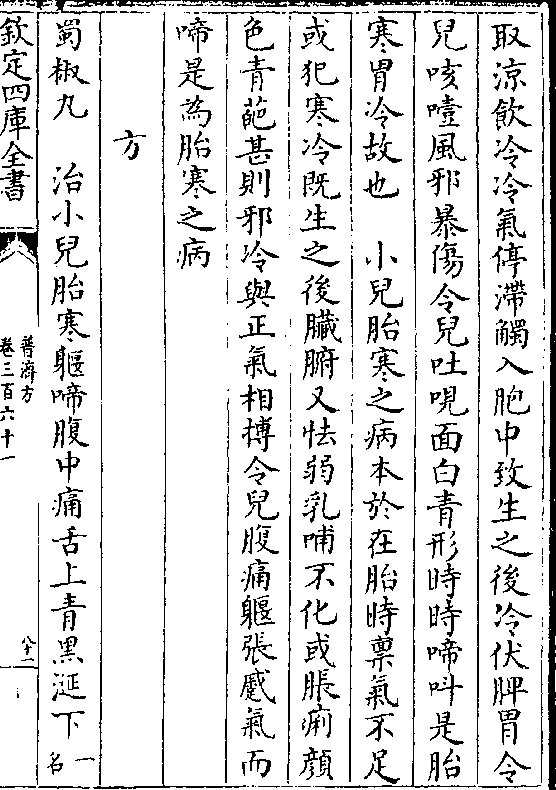 取涼飲冷冷氣停滯觸入胞中致生之後冷伏脾胃令
兒咳噎風邪暴傷令兒吐哯面白青形時時啼呌是胎
寒胃冷故也　小兒胎寒之病本於在胎時禀氣不足
或犯寒冷既生之後臟腑又怯弱乳哺不化或脹痢顔
色青葩甚則邪冷與正氣相搏令兒腹痛軀張蹙氣而
啼是為胎寒之病
方
蜀椒丸　治小兒胎寒軀啼腹中痛舌上青黑涎下一名
欽定四庫全書
普濟方
卷三百六十一
八十二